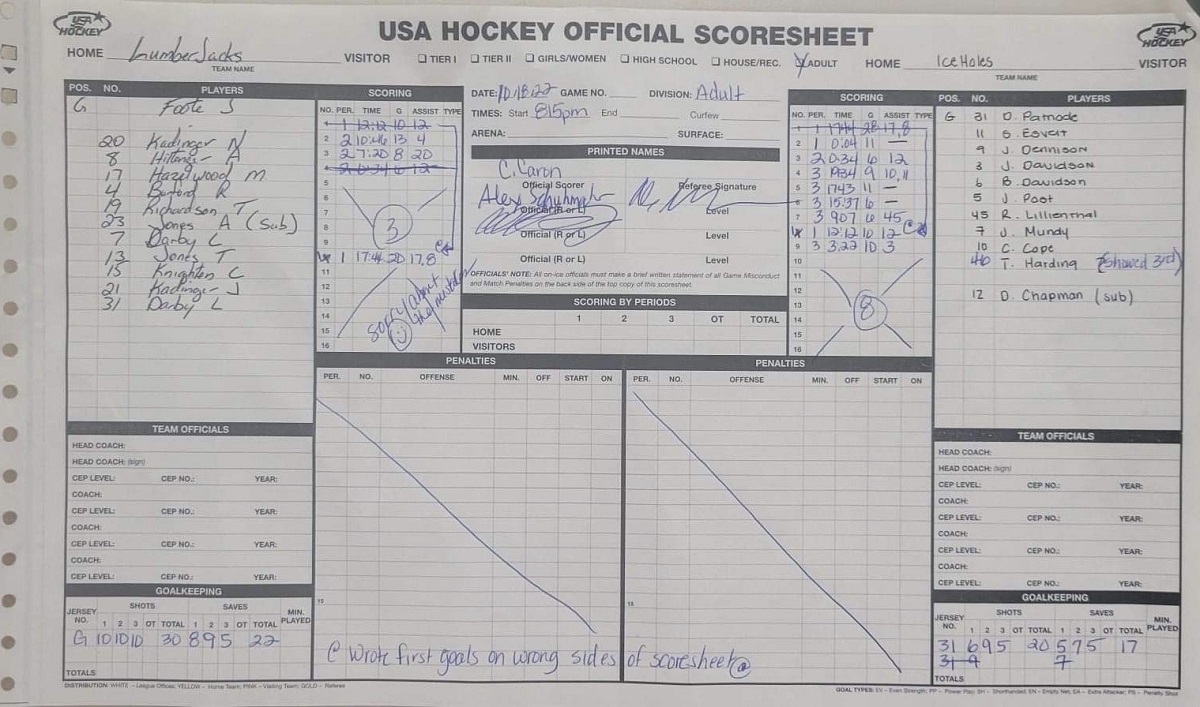 USA HOCKEY
USA HOCKEY OFFICIAL SCORESHEET
USA HOCKEY
HOME LumberJacks VISITOR
TEAM NAME
☐ TIER I ☐ TIER II ☐ GIRLS/WOMEN ☐ HIGH SCHOOL ☐ HOUSE/REC. ☑ ADULT
HOME IceHoles VISITOR
TEAM NAME
POS. NO. PLAYERS
G Foote S
20 Kadinger N
8 A
17 Hazelwood M
4 R
19 Richardson T
23 Jones A (Sub)
7 Darby L
13 Jones T
15 Knighten C
21 Kadinger J
31 Darby L
SCORING
NO. PER. TIME G ASSIST TYPE
1 1 12:12 10 12
2 2 10:46 13 4
3 2 7:20 8 20
4 2 0:34 6 12
5
6
7
8
9
1 17:44 20 17,8
11
12
13
14
15
16
3
sorry about the mistakes
DATE: 10.18.22 GAME NO. DIVISION: Adult
TIMES: Start 815pm End Curfew
ARENA: SURFACE:
PRINTED NAMES
C. Caron
Official Scorer
Referee Signature
Alex
Official (R or L) Level
Official (R or L) Level
Official (R or L) Level
OFFICIALS' NOTE: All on-ice officials must make a brief written statement of all Game Misconduct
and Match Penalties on the back side of the top copy of this scoresheet.
SCORING BY PERIODS
1 2 3 OT TOTAL
HOME
VISITORS
SCORING
NO. PER. TIME G ASSIST TYPE
1 1 1744 20 17,8
2 1 0:04 11 —
3 2 0:34 6 12
4 3 1934 9 10,11
5 3 1743 11 —
6 3 15:37 6 —
7 3 907 6 45
1 12:12 10 12
9 3 3:22 10 3
10
11
12
13
14
15
16
8
POS. NO. PLAYERS
G 31 D. Patnode
11 S.
9 J. Dennison
3 J. Davidson
6 B. Davidson
5 J. Poot
45 R. Lillienthal
7 J. Mundy
10 C. Cope
46 T. Harding (showed 3rd)
12 D. Chapman (sub)
PENALTIES
PER. NO. OFFENSE MIN. OFF START ON
15
PENALTIES
PER. NO. OFFENSE MIN. OFF START ON
15
Wrote first goals on wrong sides of scoresheet
TEAM OFFICIALS
HEAD COACH:
HEAD COACH: (sign)
CEP LEVEL: CEP NO.: YEAR:
COACH:
CEP LEVEL: CEP NO.: YEAR:
COACH:
CEP LEVEL: CEP NO.: YEAR:
COACH:
CEP LEVEL: CEP NO.: YEAR:
GOALKEEPING
JERSEY NO. SHOTS SAVES MIN. PLAYED
1 2 3 OT TOTAL 1 2 3 OT TOTAL
G 10 10 10 30 8 9 5 22
TOTALS
TEAM OFFICIALS
HEAD COACH:
HEAD COACH: (sign)
CEP LEVEL: CEP NO.: YEAR:
COACH:
CEP LEVEL: CEP NO.: YEAR:
COACH:
CEP LEVEL: CEP NO.: YEAR:
COACH:
CEP LEVEL: CEP NO.: YEAR:
GOALKEEPING
JERSEY NO. SHOTS SAVES MIN. PLAYED
1 2 3 OT TOTAL 1 2 3 OT TOTAL
31 6 9 5 20 5 7 5 17
31 9 7
TOTALS
DISTRIBUTION: WHITE – League Offices; YELLOW – Home Team; PINK – Visiting Team; GOLD – Referee
GOAL TYPES: EV – Even Strength; PP – Power Play; SH – Shorthanded; EN – Empty Net; EA – Extra Attacker; PS – Penalty Shot